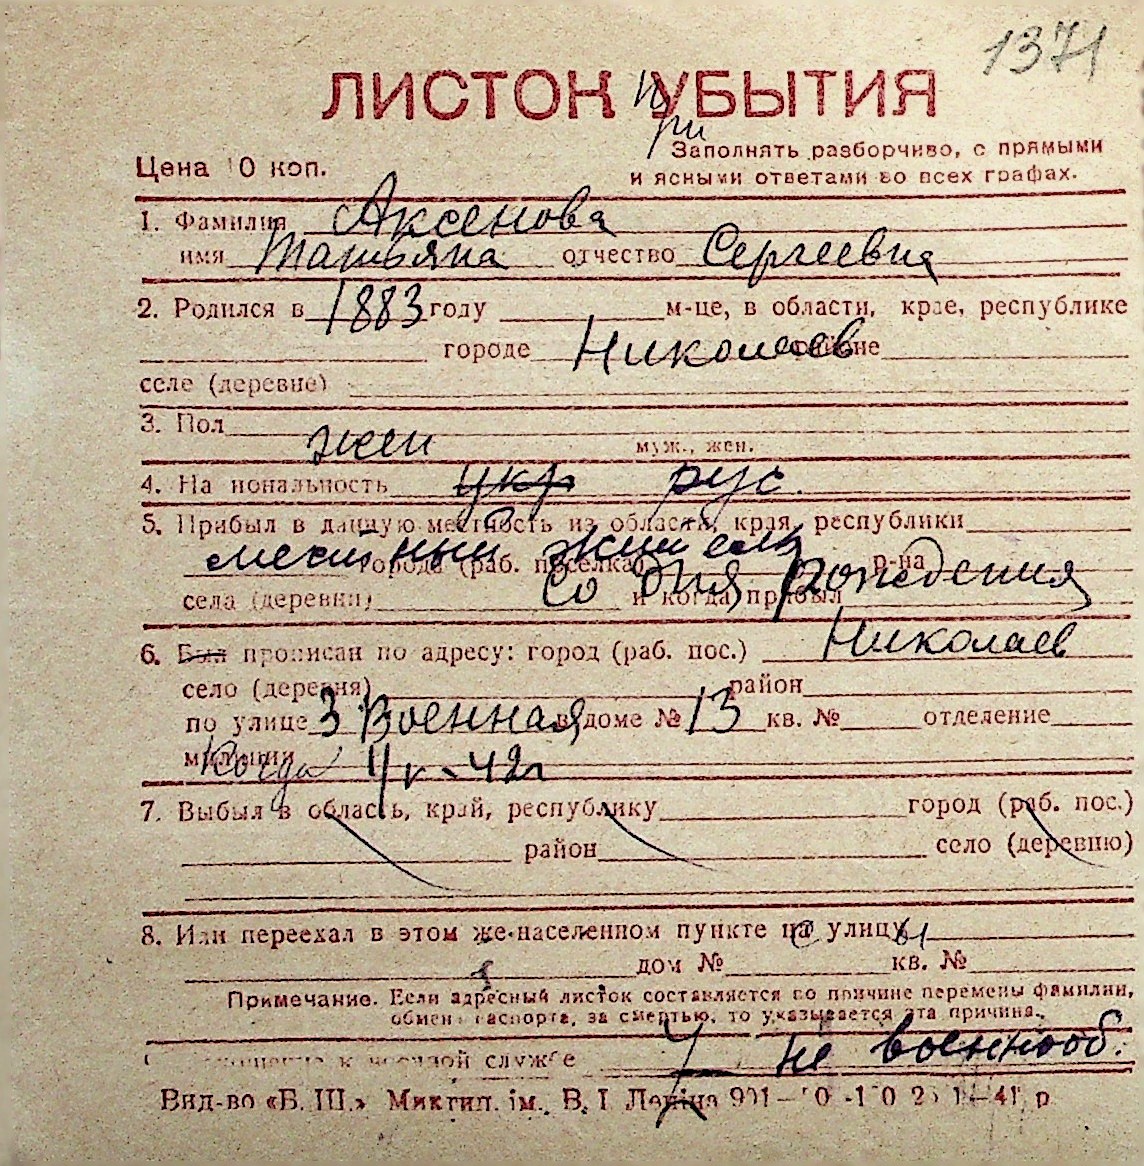 1371
ЛИСТОК УБЫТИЯ
при
Цена 10 коп.
Заполнять разборчиво, с прямыми
и ясными ответами во всех графах.
1. Фамилия Аксенова
имя Татьяна отчество Сергеевна
2. Родился в 1883 году м-це, в области, крае, республике
городе Николаев районе
селе (деревне)
3. Пол жен муж., жен.
4. Национальность укр рус.
5. Прибыл в данную местность из области, края, республики
местный житель
города (раб. поселка) р-на
со дня рождения
села (деревни) и когда прибыл
6. Был прописан по адресу: город (раб. пос.) Николаев
село (деревня) район
по улице 3 Военная в доме № 13 кв. № отделение
милиции Когда 4/V-42г
7. Выбыл в область, край, республику город (раб. пос.)
район село (деревню)
8. Или переехал в этом же населенном пункте на улицу
с ы
дом № кв. №
Примечание. Если адресный листок составляется по причине перемены фамилии,
обмена паспорта, за смертью, то указывается эта причина.
к военной службе не военнооб.
Вид-во «Б. Ш.» Миктип. ім. В. І. Леніна 41 р